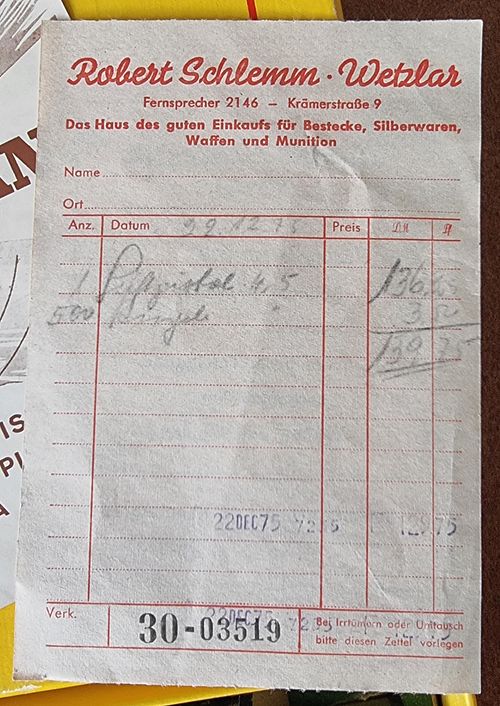 Robert Schlemm · Wetzlar
Fernsprecher 2146 – Krämerstraße 9
Das Haus des guten Einkaufs für Bestecke, Silberwaren,
Waffen und Munition
Name
Ort
Anz. Datum Preis DM Pf
1 Luftpistol 4,5
500 Kugeln "
3,50
139,75
22DEC75
22DEC75
Verk. 30-03519 Bei Irrtümern oder Umtausch
bitte diesen Zettel vorlegen
IS
PI
A